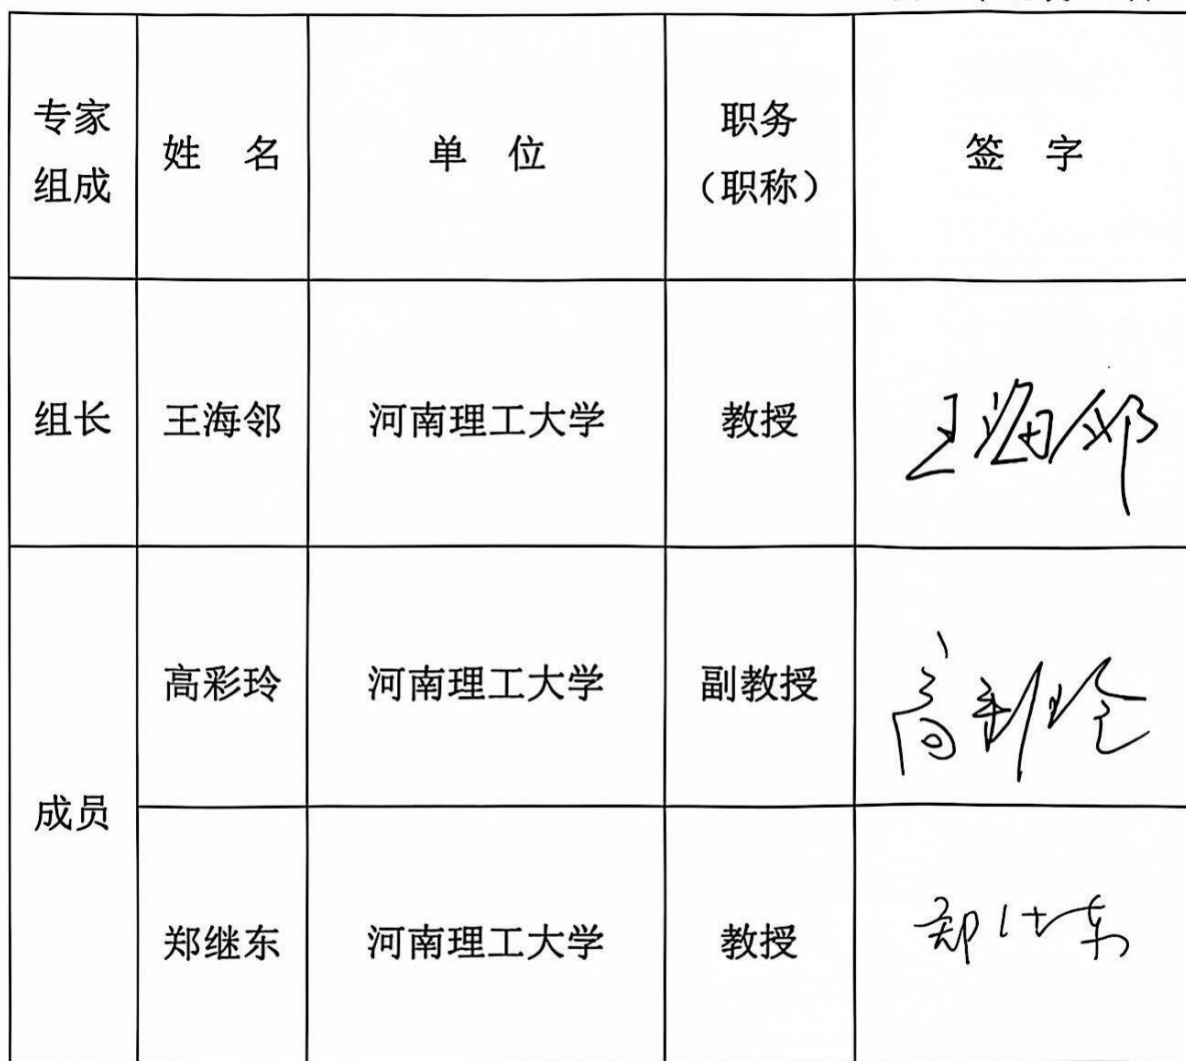 专家组成 姓 名 单 位 职务（职称） 签 字
组长 王海邻 河南理工大学 教授 王海邻
成员 高彩玲 河南理工大学 副教授 高彩玲
郑继东 河南理工大学 教授 郑继东